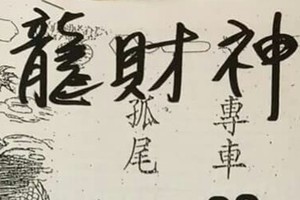 神財龍
專車
孤尾